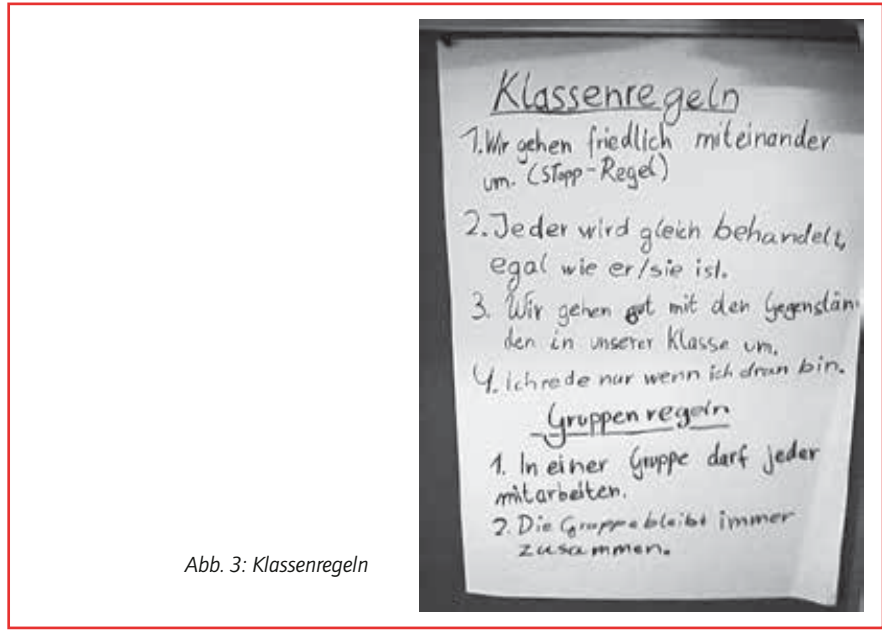 Klassenregeln
1. Wir gehen friedlich miteinander
um. (Stopp-Regel)
2. Jeder wird gleich behandelt,
egal wie er/sie ist.
3. Wir gehen gut mit den Gegenstän-
den in unserer Klasse um.
4. ich rede nur wenn ich dran bin.
Gruppenregeln
1. In einer Gruppe darf jeder
mitarbeiten.
2. Die Gruppe bleibt immer
zusammen.
Abb. 3: Klassenregeln